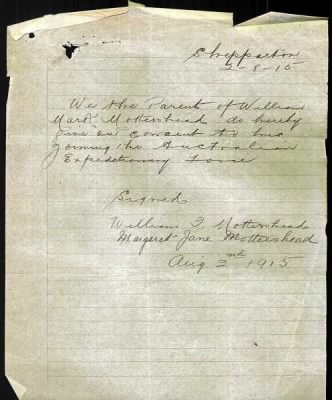 Shepparton
2-8-15
We the Parent of William
Mark Mottershead do hereby
give our concent to him
joining the Australian
Expeditionary Force
Signed
William J Mottershead
Margaret Jane Mottershead
Aug 2nd 1915